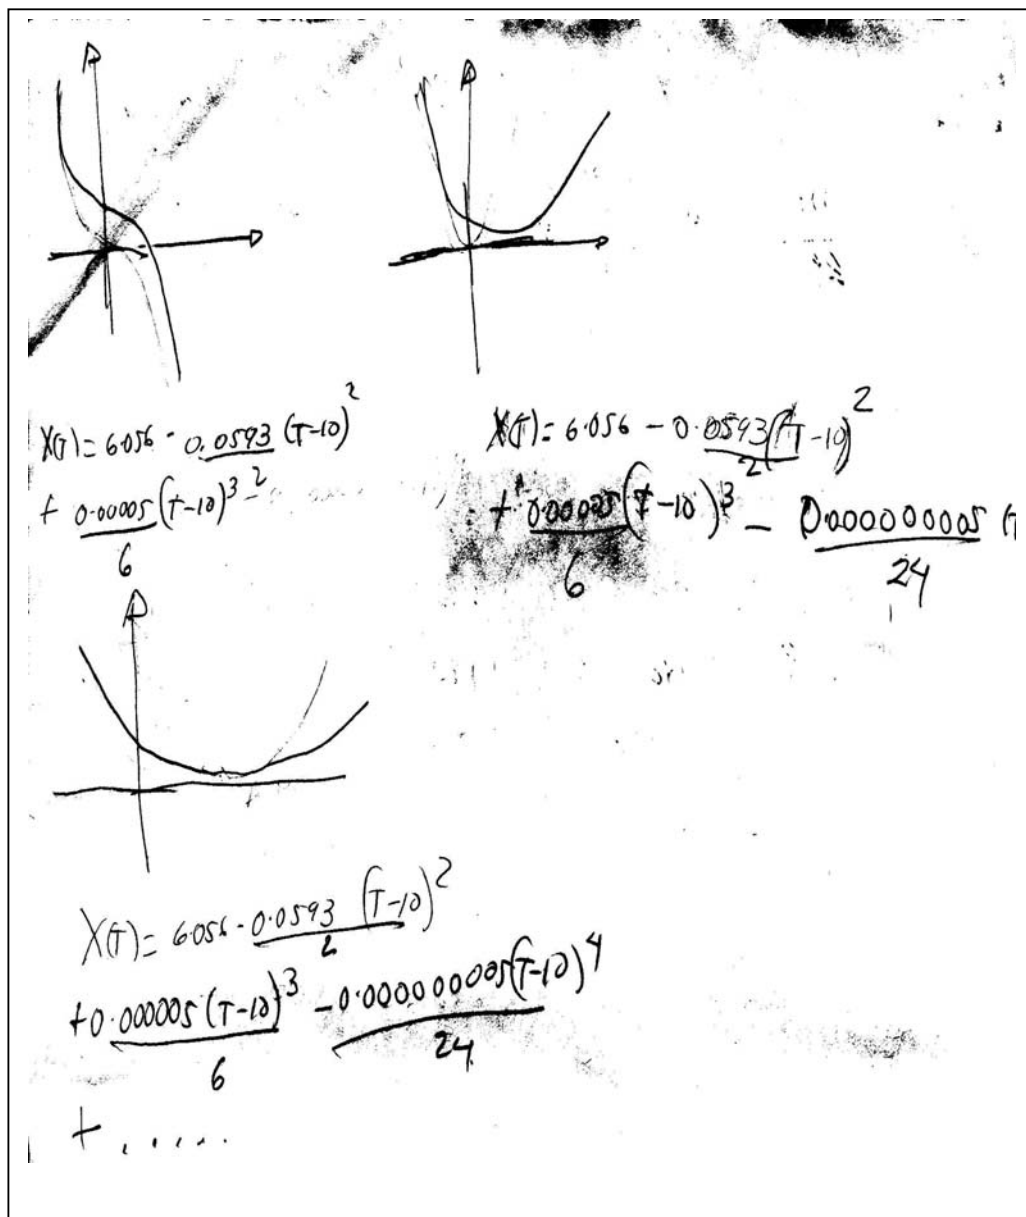 X(T) = 6.056 - 0.0593 (T-10)^2
+ 0.00005 (T-10)^3 -
6
X(T) = 6.056 - 0.0593 (T-10)^2
2
+ 0.00005 (T-10)^3 - 0.000000005 (T
6
24
X(T) = 6.056 - 0.0593 (T-10)^2
2
+ 0.000005 (T-10)^3 - 0.000000005 (T-10)^4
6
24
+ .....